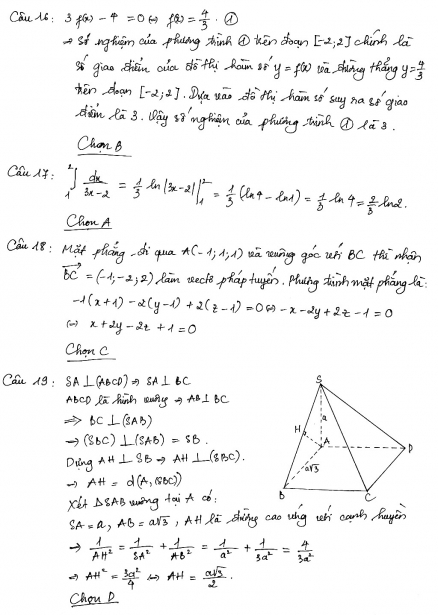 Câu 16: 3f(x) - 4 = 0 ⇔ f(x) = 4/3. ①
⇒ Số nghiệm của phương trình ① trên đoạn [-2;2] chính là
số giao điểm của đồ thị hàm số y = f(x) và đường thẳng y = 4/3
trên đoạn [-2;2]. Dựa vào đồ thị hàm số suy ra số giao
điểm là 3. Vậy số nghiệm của phương trình ① là 3.
Chọn B
Câu 17: ∫₁² dx/(3x-2) = 1/3 ln|3x-2| |₁² = 1/3 (ln4 - ln1) = 1/3 ln4 = 2/3 ln2.
Chọn A
Câu 18: Mặt phẳng đi qua A(-1;1;1) và vuông góc với BC thì nhận
BC = (-1;-2;2) làm vectơ pháp tuyến. Phương trình mặt phẳng là:
-1(x+1) - 2(y-1) + 2(z-1) = 0 ⇔ -x - 2y + 2z - 1 = 0
⇔ x + 2y - 2z + 1 = 0
Chọn C
Câu 19: SA ⊥ (ABCD) ⇒ SA ⊥ BC
ABCD là hình vuông ⇒ AB ⊥ BC
⇒ BC ⊥ (SAB)
⇒ (SBC) ⊥ (SAB) = SB.
Dựng AH ⊥ SB ⇒ AH ⊥ (SBC).
⇒ AH = d(A,(SBC))
Xét ΔSAB vuông tại A có:
SA = a, AB = a√3, AH là đường cao ứng với cạnh huyền
⇒ 1/AH² = 1/SA² + 1/AB² = 1/a² + 1/3a² = 4/3a²
⇒ AH² = 3a²/4 ⇔ AH = a√3/2.
Chọn D
S
a
H
A
D
a√3
B
C